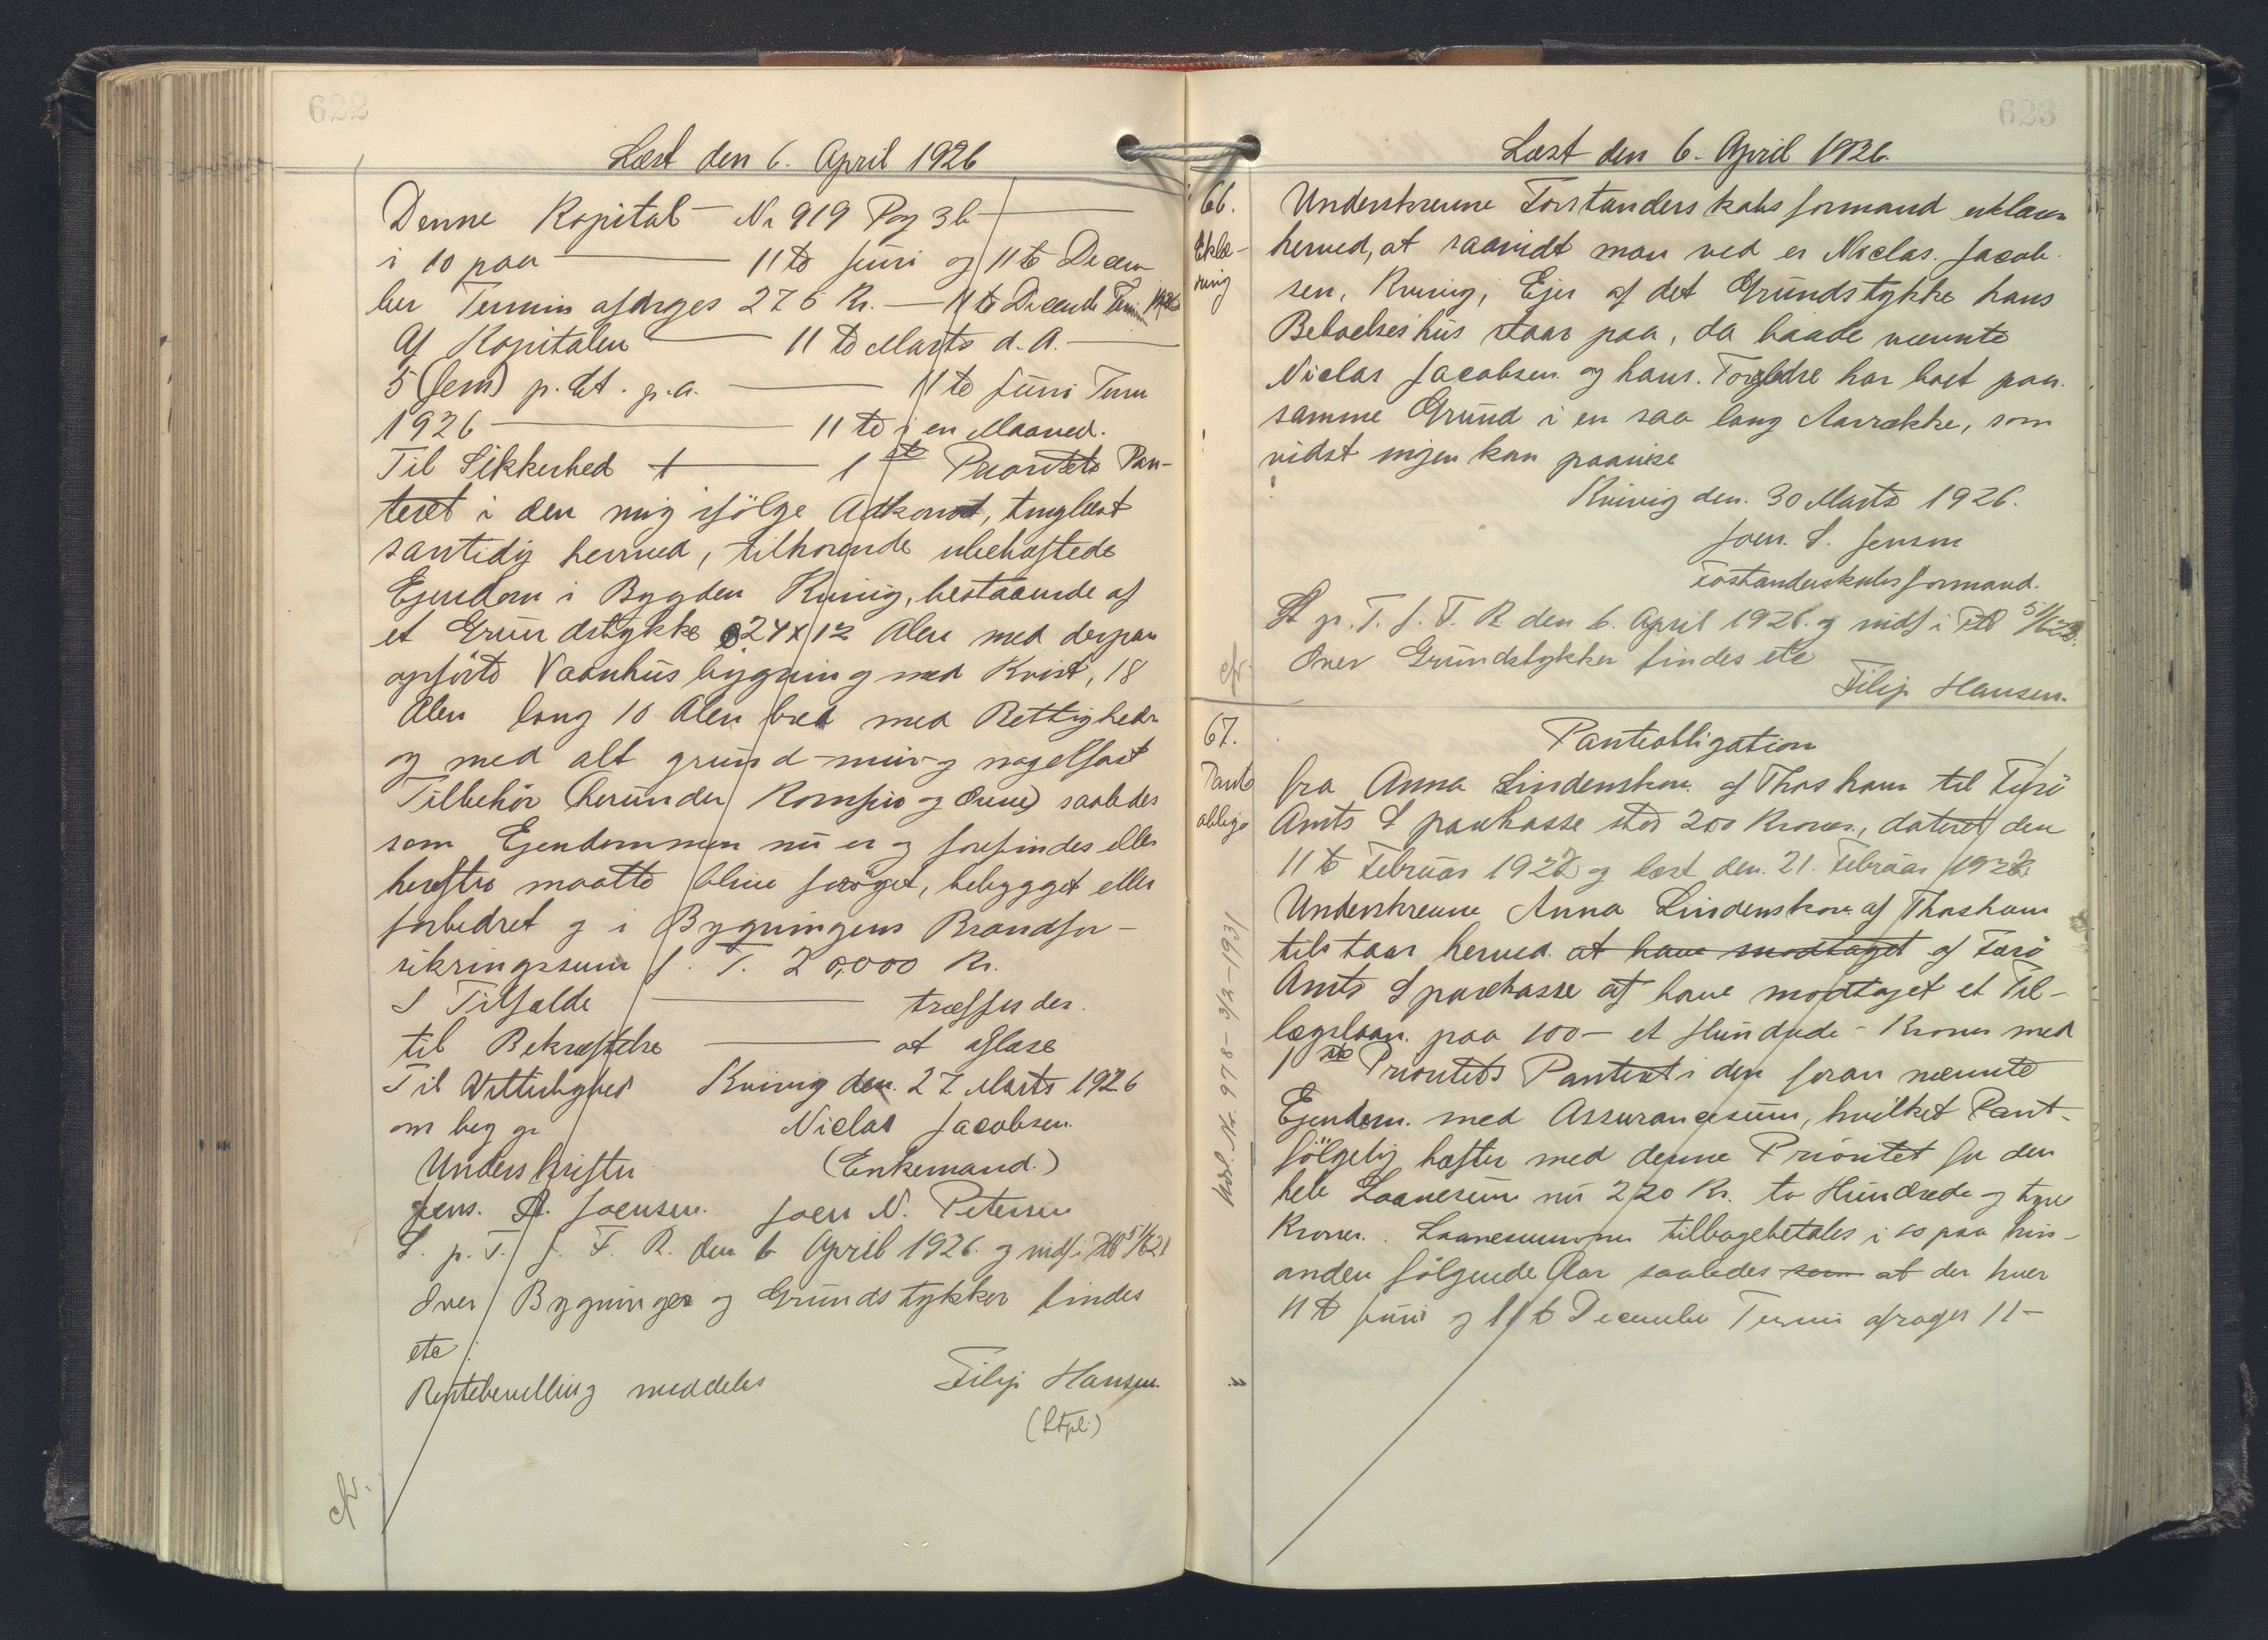 622
Læst den 6. April 1926
Denne Kapital — Nr 919 Pag 36 —
i 10 paa — 11te Juni og 11te Decem
ber Termin afdrages 275 Kr. — 11te Decemb Termin 1926
Af Kapitalen — 11te Marts d. A. —
5 (fem) p. Ct. p. a. — 11te Juni Term
1926 — 11te i en Maaned.
Til Sikkerhed — 1ste Prioritets Pan-
teret i den mig ifölge Adkomst, tinglæst
samtidig hermed, tilhörende ubehæftede
Ejendom i Bygden Kvivig, bestaaende af
et Grundstykke 24 x 12 Alen med derpaa
opförte Vaanhusbygning med Kvist, 18
Alen lang 10 Alen bred med Rettigheder
og med alt grund-mur-og nagelfast
Tilbehör (herunder Komfur og Ovne) saaledes
som Ejendommen nu er og forefindes eller
herefter maatte blive foröget, bebygget eller
forbedret og i Bygningens Brandfor-
sikringssum f. T. 20,000 Kr.
I Tilfælde — træffes der.
til Bekræftelse — at aflæse
Til Vitterlighed Kvivig den 27 Marts 1926
om beg gr Niclas Jacobsen.
Underskrifter (Enkemand.)
Jens. A. Joensen. Joen N. Petersen
L. p. T. f. F. R. den 6 April 1926. og indf i PtB 5/621
Over Bygninger og Grundstykker findes
etc.
Rentebevilling meddeles Filip Hansen.
(Ctpl.)
cfr.
623
Læst den 6. April 1926.
66.
Erklæ-
ring
Underskrevne Forstanderskabsformand erklærer
herved, at saavidt man ved er Niclas. Jacob-
sen, Kvivig, Ejer af det Grundstykke hans
Beboelseshus staar paa, da baade nævnte
Niclas Jacobsen og hans. Forældre har boet paa
samme Grund i en saa lang Aarrække, som
vidst ingen kan paavise
Kvivig den. 30 Marts 1926.
Joen. S. Jensen
Forstanderskabsformand.
Lt p. T. f. F. R. den 6. April 1926. og indf i PtB 5/622.
cfr. Over Grundstykker findes etc
Filip Hansen.
67.
Pante
obliga
Panteobligation
fra Anna Lindenskov. af Thorshavn til Færö
Amts Sparekasse stor 200 Kroner., dateret den
11te Februar 1922 og læst den. 21. Februar 1922
Underskrevne Anna Lindenskov af Thorshavn
tilstaar herved. at have modtaget af Færö
Amts Sparekasse at have modtaget et Til-
lægslaan. paa 100 — et Hundrede — Kroner med
1ste Prioritets Panteret i den foran nævnte
Ejendom. med Assurancesum, hvilket Pant
fölgelig hæfter med denne Prioritet for den
hele Laanesum nu 220 Kr. to Hundrede og tyve
Kroner. Laanesummen tilbagebetales i 10 paa hin-
anden fölgende Aar saaledes som at der hver
11te Juni og 11te December Termin afdrages 11 —
Udsl. Nr. 978 - 3/2 - 1931